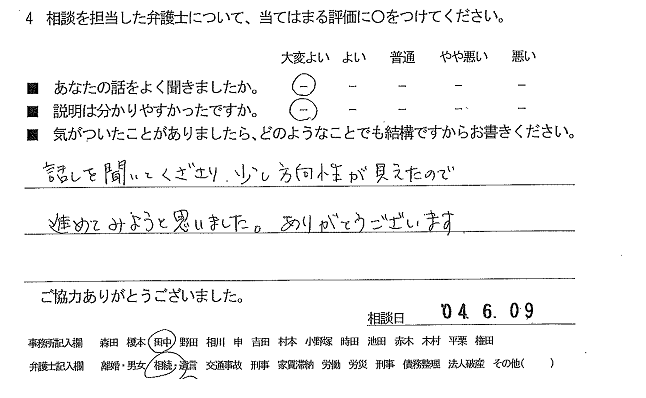 4 相談を担当した弁護士について、当てはまる評価に○をつけてください。
大変よい よい 普通 やや悪い 悪い
■ あなたの話をよく聞きましたか。 － － － － －
■ 説明は分かりやすかったですか。 － － － － －
■ 気がついたことがありましたら、どのようなことでも結構ですからお書きください。
話しを聞いてくださり、少し方向性が見えたので
進めてみようと思いました。ありがとうございます
ご協力ありがとうございました。
相談日 '04 6.09
事務所記入欄 森田 榎本 田中 野田 相川 申 吉田 村本 小野塚 時田 池田 赤木 木村 平栗 権田
弁護士記入欄 離婚・男女 相続・遺言 交通事故 刑事 家賃滞納 労働 労災 刑事 債務整理 法人破産 その他( )